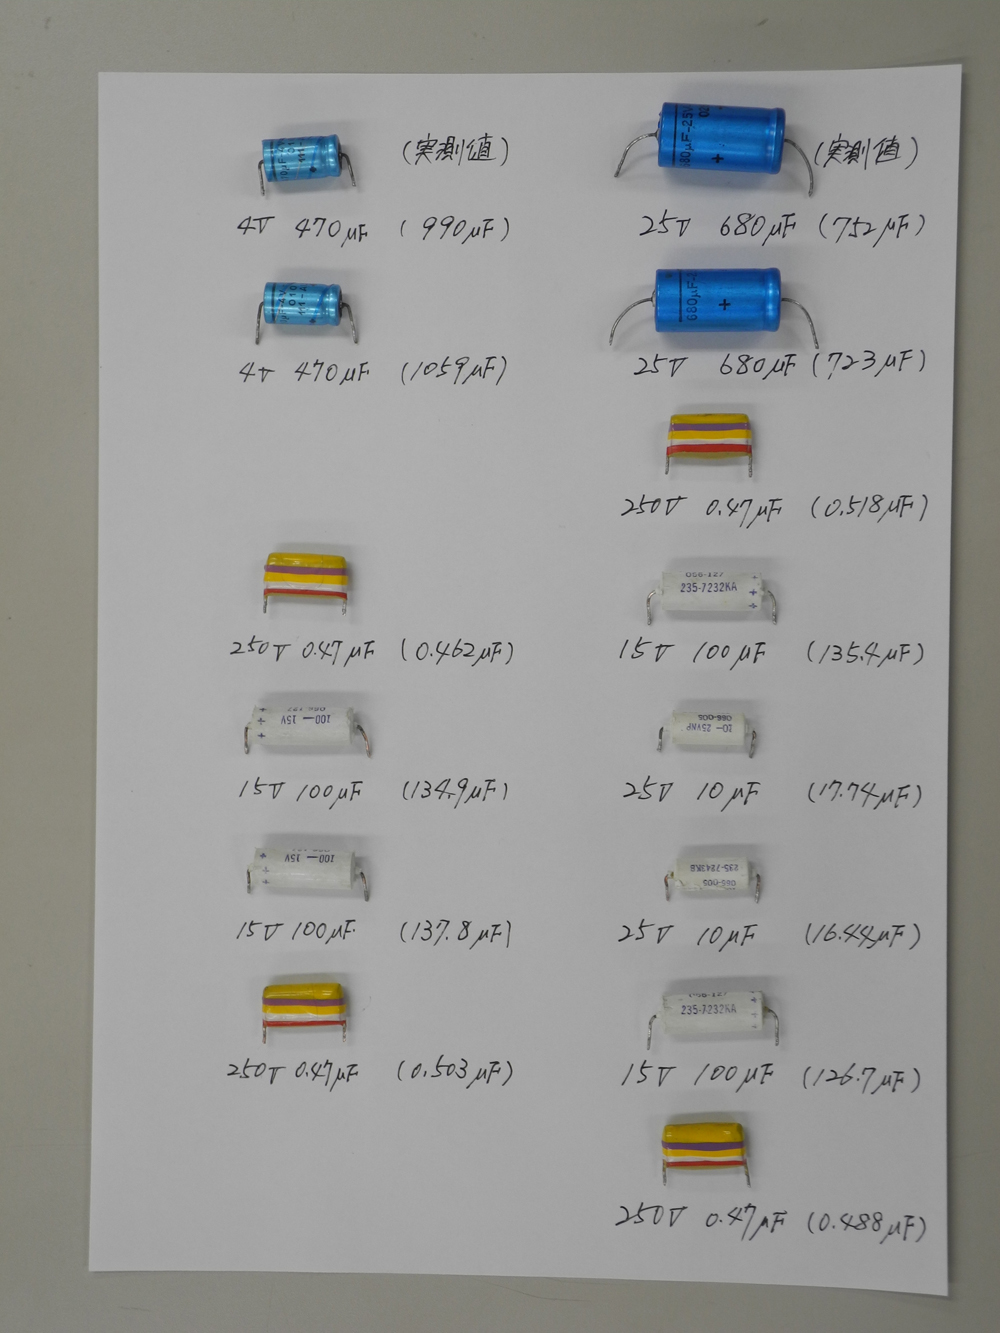 (実測値)
4V 470μF (990μF)
4V 470μF (1059μF)
250V 0.47μF (0.462μF)
100—15V
15V 100μF (134.9μF)
100—15V
15V 100μF (137.8μF)
250V 0.47μF (0.503μF)
680μF-25V
+
(実測値)
25V 680μF (752μF)
680μF-
+
25V 680μF (723μF)
250V 0.47μF (0.518μF)
235-7232KA
15V 100μF (135.4μF)
066-005
10—25VNP
25V 10μF (17.74μF)
235-7243KB
25V 10μF (16.44μF)
235-7232KA
15V 100μF (126.7μF)
250V 0.47μF (0.488μF)